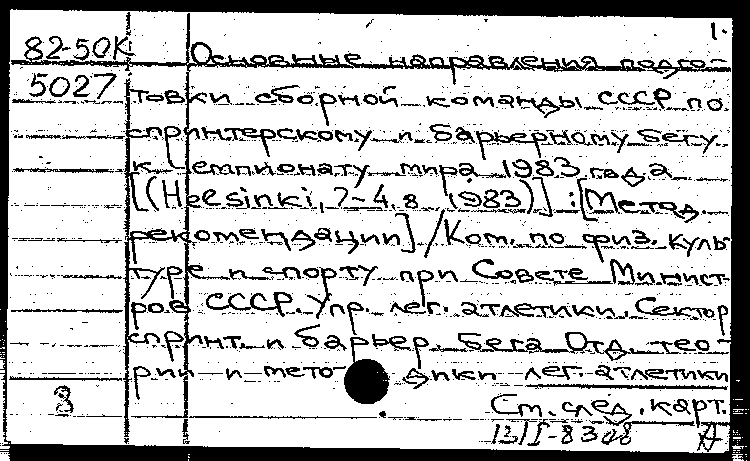 1.
82-50К Основные направления подго-
5027 товки сборной команды СССР по
спринтерскому и барьерному бегу
к чемпионату мира 1983 года
[(Helsinki, 7-4.8 1983)] : [Метод.
рекомендации] / Ком. по физ. куль-
туре и спорту при Совете Минист-
ров СССР. Упр. лег. атлетики. Сектор
спринт. и барьер. бега Отд. тео-
рии и мето- дики лег. атлетики
8 См. след. карт.